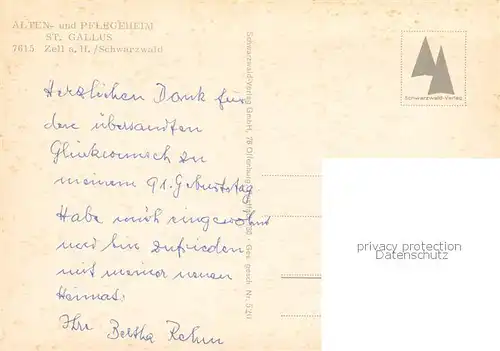 ALTEN- und PFLEGEHEIM
ST. GALLUS
7615 Zell a. H./Schwarzwald
Herzlichen Dank für
den übersandten
Glückwunsch zu
meinem 91. Geburtstag
Habe mich eingewöhnt
und bin zufrieden
mit meiner neuen
Heimat.
Ihre Bertha Rehm
Schwarzwald-Verlag GmbH, 78 Offenburg
Ges. gesch. Nr.
Schwarzwald-Verlag
privacy protection
Datenschutz